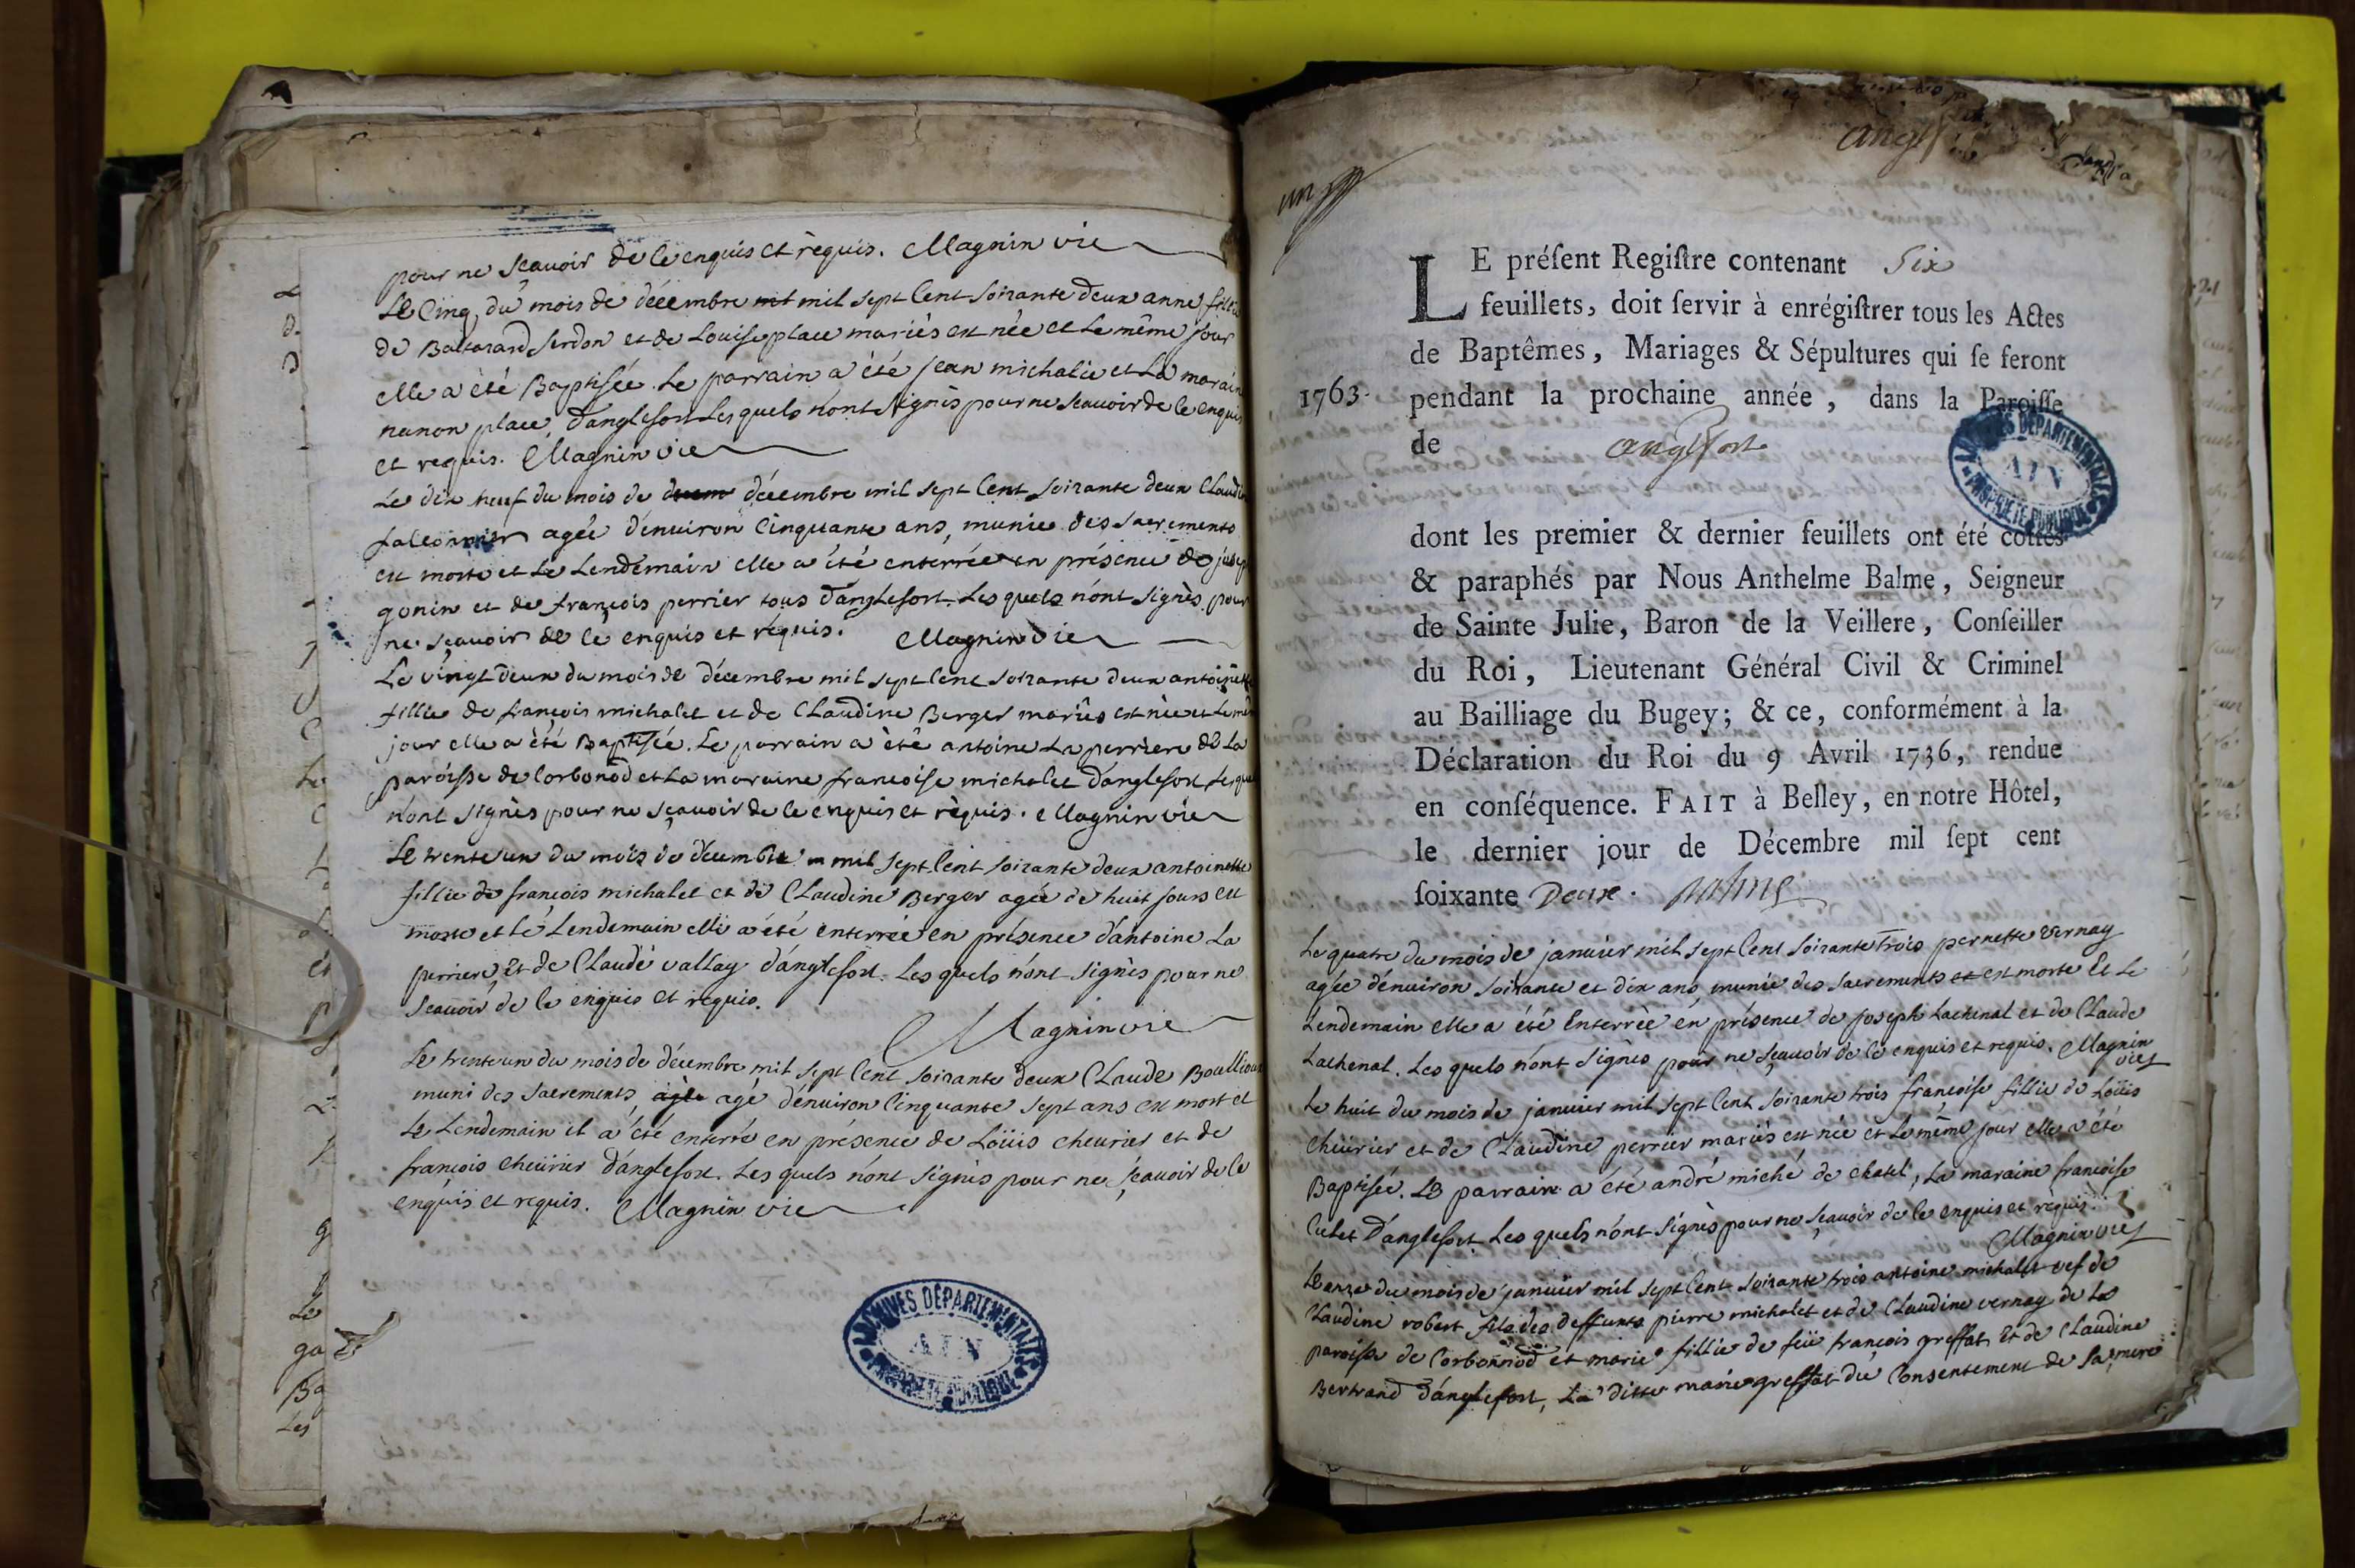 pour ne sçauoir de ce enquis et requis. Magnin vic
Le Cinq du mois de décembre mil sept Cent Soixante deux anne fillie
de Baltazard Serdon et de Louise place mariés est née et le même jour
elle a été Baptisée. Le parrain a été jean michalet et la maraine
nanon place, d'anglefort Lesquels n'ont signés pour ne sçauoir de ce enquis
et requis. Magnin vic
Le dix neuf du mois de décembre mil sept Cent soixante deux Claudine
falconnier agée d'enuiron Cinquante ans, munie des sacrements
est morte et le Lendemain elle a été enterrée en présence de joseph
gonin et de françois perrier tous d'anglefort. Lesquels n'ont signés pour
ne sçauoir de ce enquis et requis. Magnin vic
Le vingt deux du mois de décembre mil sept Cent soixante deux antoinette
fillie de françois michalet et de Claudine Berger mariés est née et le même
jour elle a été Baptisée. Le parrain a été antoine La perriere de La
paroisse de Corbonod et La maraine francoise michalet d'anglefort Lesquels
n'ont signés pour ne sçauoir de ce enquis et requis. Magnin vic
Le trente un du mois de décembre mil sept Cent soixante deux antoinette
fillie de françois michalet et de Claudine Berger agée de huit jours est
morte et le Lendemain elle a été enterrée en présence d'antoine La
perriere, Et de Claude vallay d'anglefort. Les quels n'ont signés pour ne
sçauoir de ce enquis et requis.
Magnin vic
Le trente un du mois de décembre mil sept Cent soixante deux Claude Boullioud
muni des sacrements, agé d'enuiron Cinquante sept ans est mort et
Le Lendemain il a été enterré en présence de Loüis cheurier et de
françois cheurier d'anglefort. Les quels n'ont signés pour ne sçauoir de ce
enquis et requis. Magnin vic
ARCHIVES DÉPARTEMENTALES
AIN
PROPRIÉTÉ PUBLIQUE
un
LE préſent Regiſtre contenant Six
feuillets, doit ſervir à enrégiſtrer tous les Actes
de Baptêmes, Mariages & Sépultures qui ſe feront
1763. pendant la prochaine année, dans la Paroiſſe
de anglefort
ARCHIVES DÉPARTEMENTALES
AIN
PROPRIÉTÉ PUBLIQUE
dont les premier & dernier feuillets ont été cottés
& paraphés par Nous Anthelme Balme, Seigneur
de Sainte Julie, Baron de la Veillere, Conſeiller
du Roi, Lieutenant Général Civil & Criminel
au Bailliage du Bugey; & ce, conformément à la
Déclaration du Roi du 9 Avril 1736, rendue
en conſéquence. FAIT à Belley, en notre Hôtel,
le dernier jour de Décembre mil ſept cent
ſoixante Deux. Balme
Le quatre du mois de januier mil sept Cent soixante trois pernette vernay
agée d'enuiron soixante et dix ans, munie des sacrements est morte Et Le
Lendemain elle a été Enterrée en présence de joseph Lachenal et de Claude
Lachenal. Les quels n'ont signés pour ne sçauoir de ce enquis et requis. Magnin
vic
Le huit du mois de januier mil sept Cent soixante trois françoise fillie de Loüis
cheurier et de Claudine perrier mariés est née et Le même jour elle a été
Baptisée. Le parrain a été andré miché de chatel, La maraine francoise
Culet d'anglefort Les quels n'ont signés pour ne sçauoir de ce enquis et requis.
Magnin vic
Le onze du mois de januier mil sept Cent soixante trois antoine michalet vef de
Claudine robert fils des deffunts pierre michalet et de Claudine vernay de La
paroisse de Corbonnod et marie fillie de feü françois greffat Et de Claudine
Bertrand d'anglefort, La ditte marie greffat du Consentement de sa mere